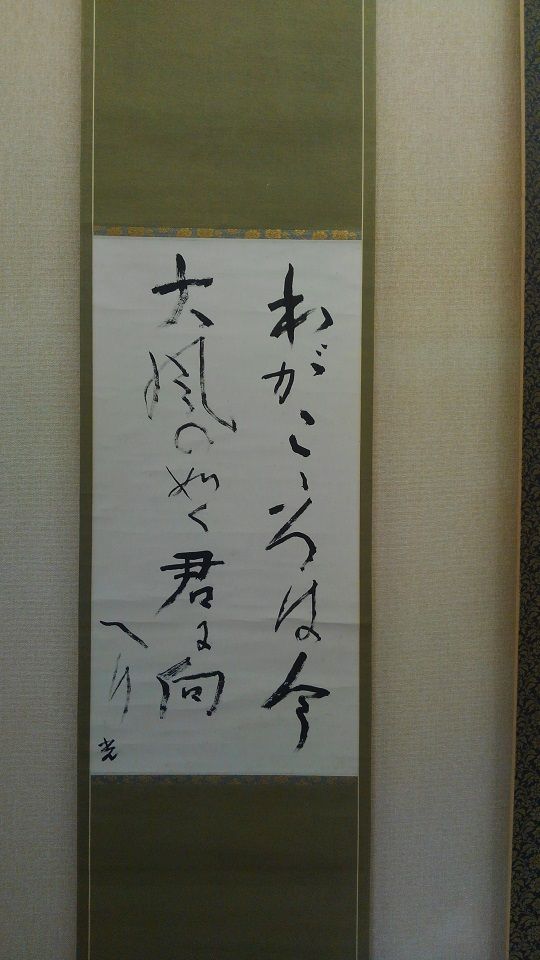 わがこゝろは今
大風の如く君に向
へり
光